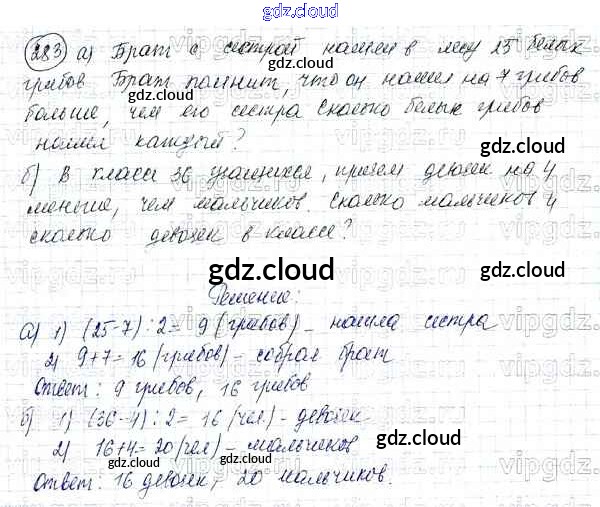 gdz.cloud
283 а) Брат с сестрой нашли в лесу 25 белых
грибов Брат помнит, что он нашел на 7 грибов
больше, чем его сестра Сколько белых грибов
нашел каждый?
gdz.cloud
б) В классе 36 учащихся, причем девочек на 4
меньше, чем мальчиков. Сколько мальчиков и
сколько девочек в классе?
gdz.cloud
gdz.cloud
Решение:
а) 1) (25-7):2= 9 (грибов) – нашла сестра
2) 9+7=16 (грибов) – собрал брат
Ответ: 9 грибов, 16 грибов
gdz.cloud
б) 1) (36-4):2=16 (чел) – девочек
2) 16+4=20 (чел) – мальчиков
gdz.cloud
Ответ: 16 девочек, 20 мальчиков.